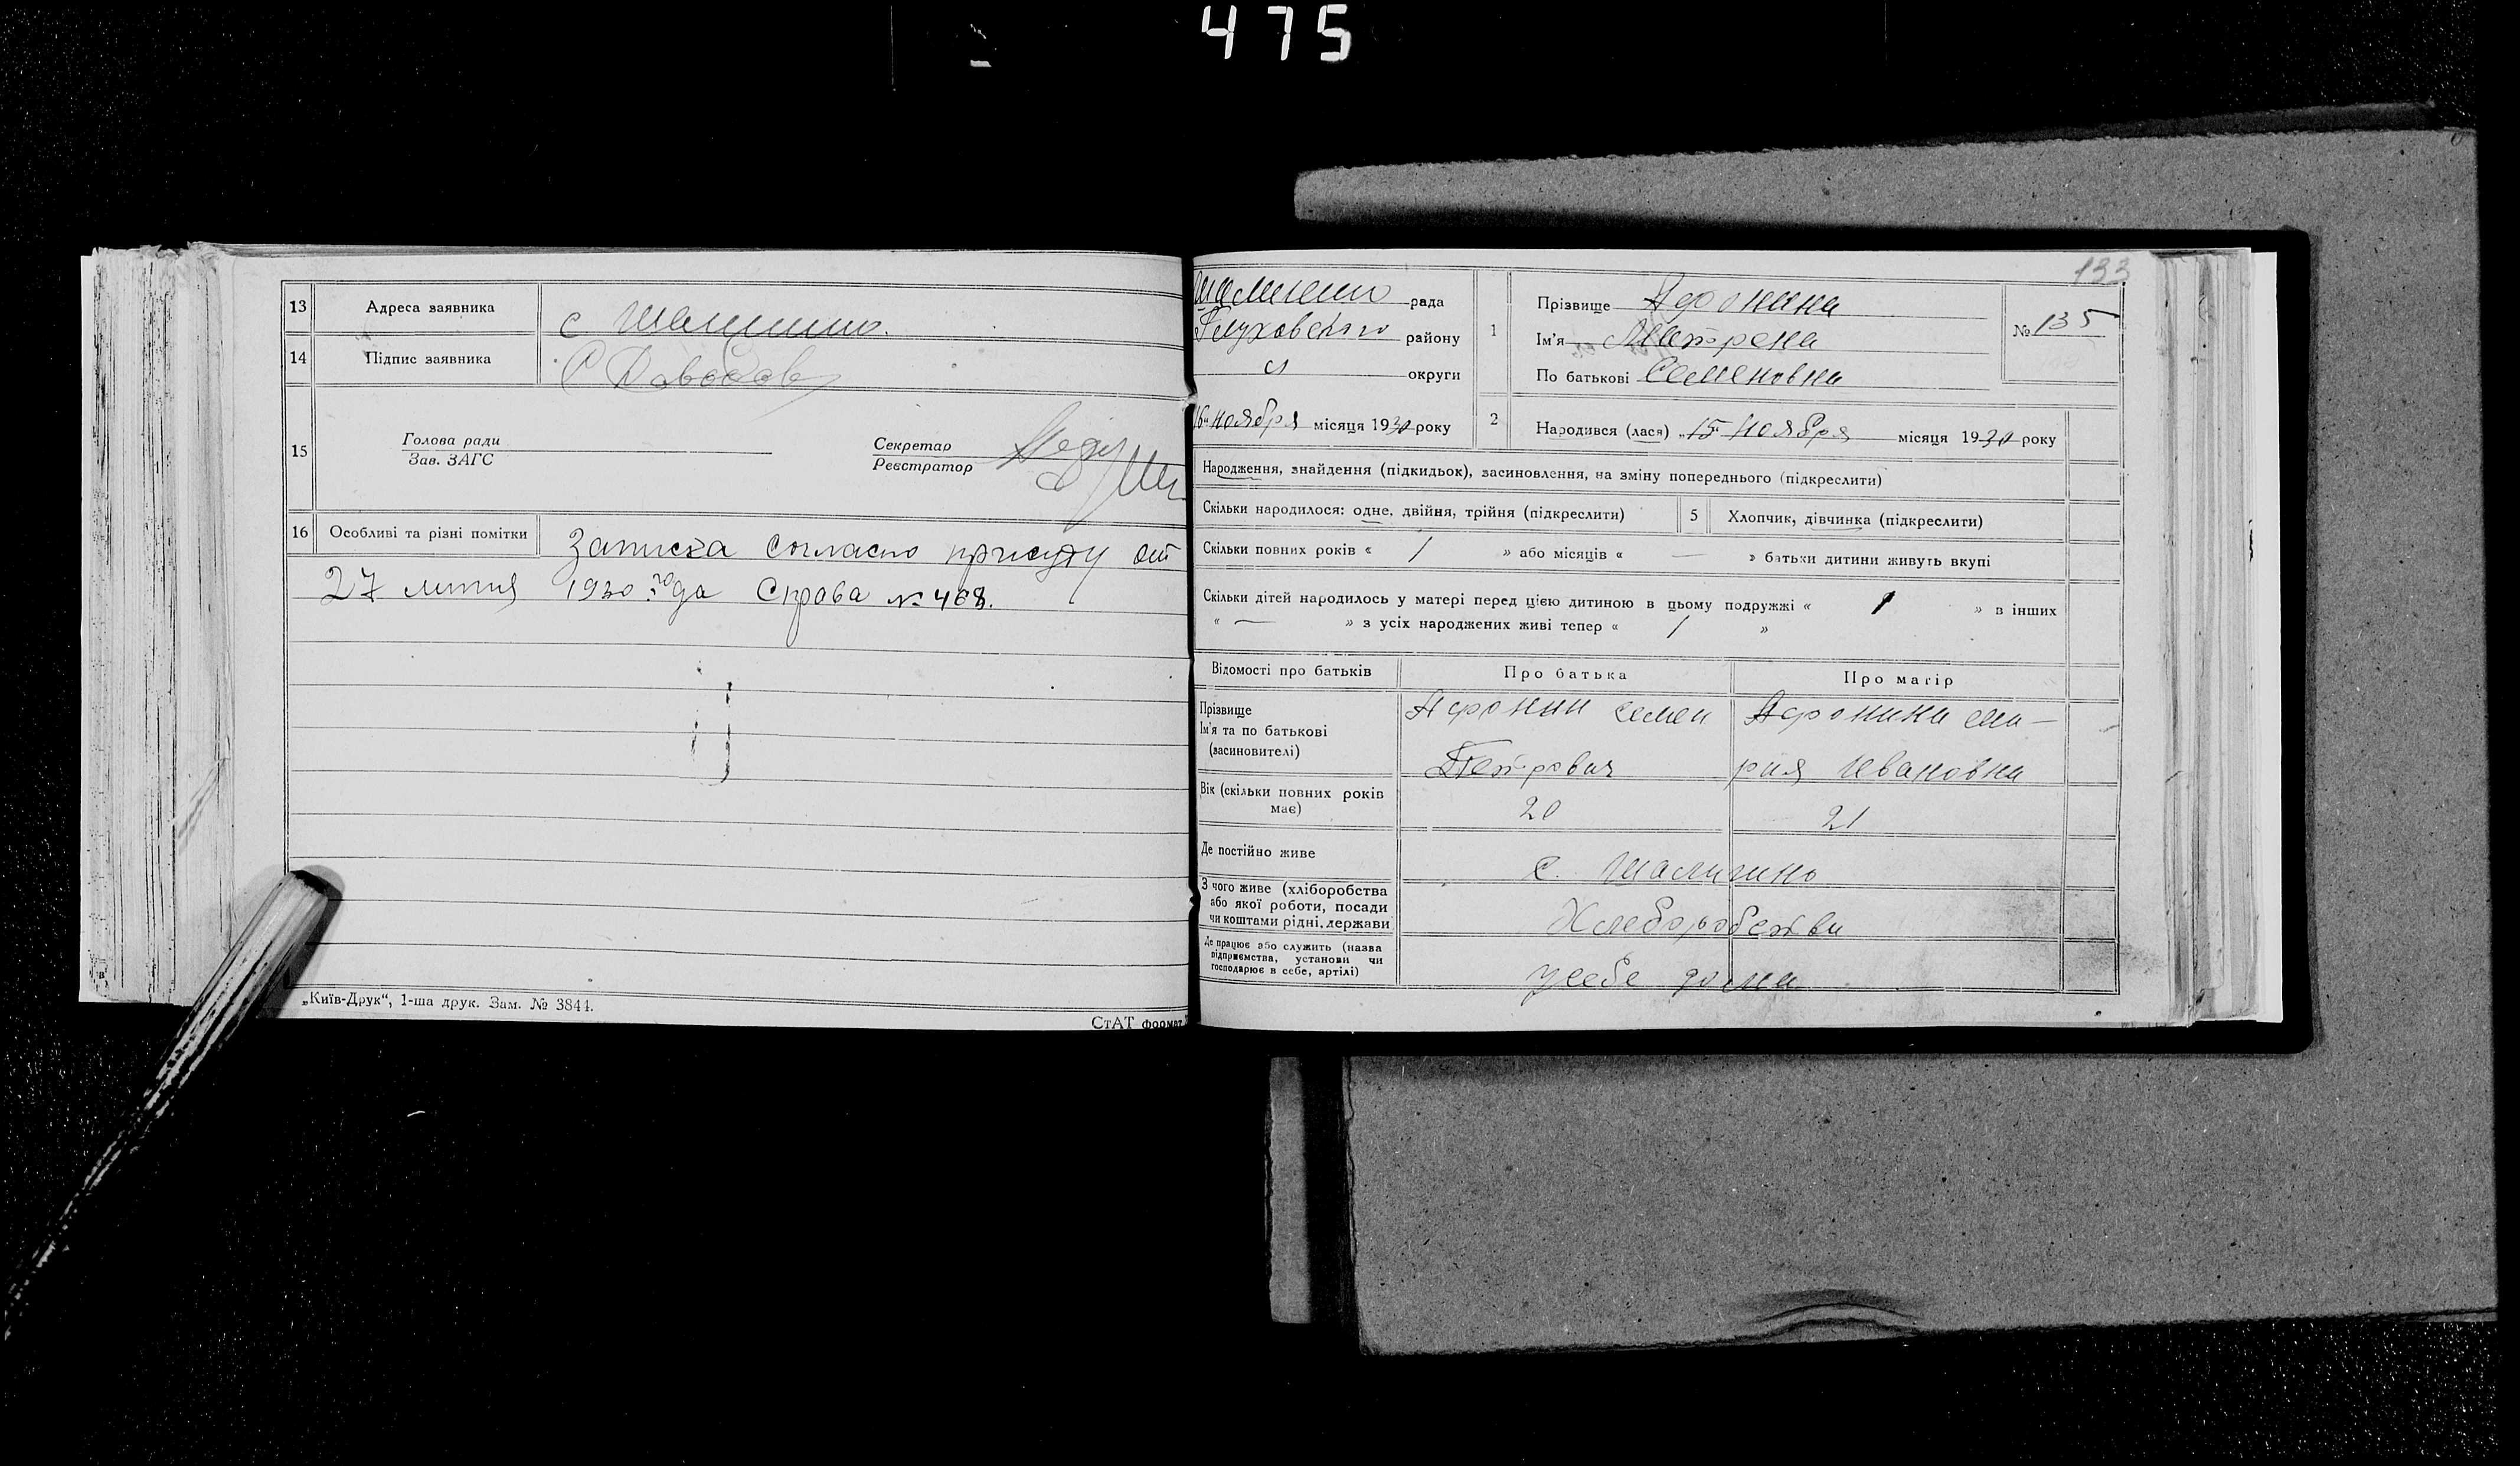 475
13 Адреса заявника с Шалигино.
14 Підпис заявника
15 Голова ради
Зав. ЗАГС
Секретар
Реєстратор
16 Особливі та різні помітки Записка согласно присуду от
27 липня 1930 года Справа № 468.
„Київ-Друк“, 1-ша друк. Зам. № 3844.
СтАТ формат
133
Шалигино рада
Глуховского району
округи
16 ноября місяця 1930 року
1 Прізвище Афонина
Ім'я Матрена
По батькові Семеновна
№ 135
2 Народився (лася) „15“ ноября місяця 1930 року
Народження, знайдення (підкидьок), засиновлення, на зміну попереднього (підкреслити)
Скільки народилося: одне, двійня, трійня (підкреслити) 5 Хлопчик, дівчинка (підкреслити)
Скільки повних років « 1 » або місяців « — » батьки дитини живуть вкупі
Скільки дітей народилось у матері перед цією дитиною в цьому подружжі « 1 » в інших
« — » з усіх народжених живі тепер « 1 »
Відомості про батьків Про батька Про матір
Прізвище
Ім'я та по батькові
(засиновителі)
Афонин Семен
Петрович
Афонина Ма-
рия Ивановна
Вік (скільки повних років
має)
20 21
Де постійно живе с. Шалигино
З чого живе (хліборобства
або якої роботи, посади
чи коштами рідні, держави
Хлеборобства
Де працює або служить (назва
підприємства, установи чи
господарює в себе, артілі)
у себе дома